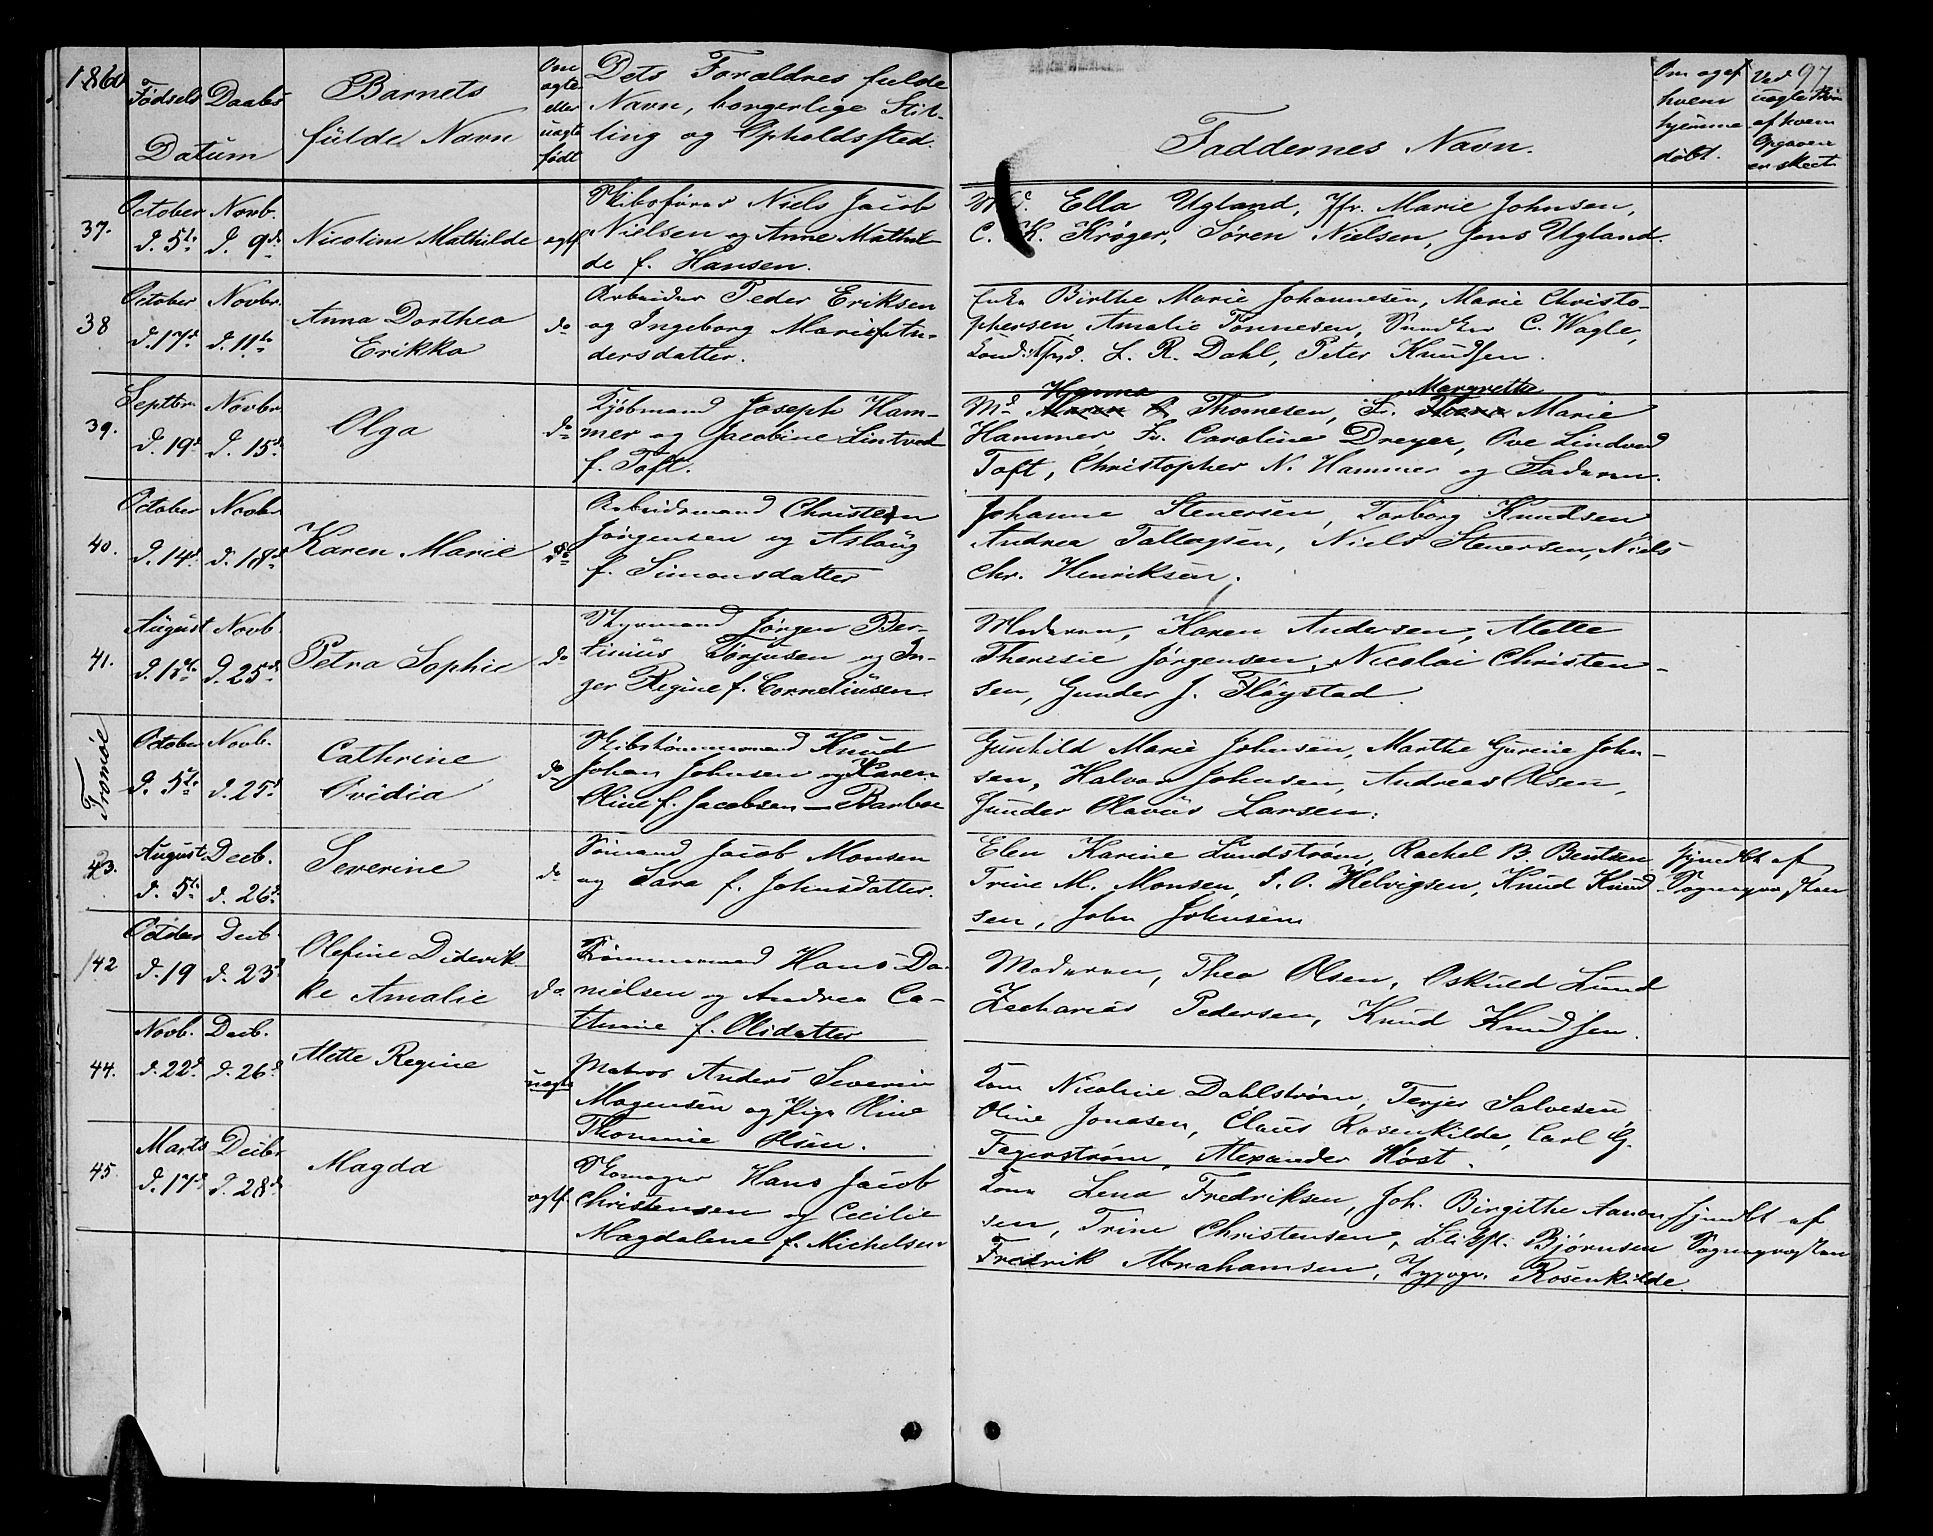 1860
97
Fødsels Daabs
Datum
Barnets
fulde Navn
Om
ægte
eller
uægte
født
Dets Forældres fulde
Navn, borgerlige Stil-
ling og Opholdssted.
Faddernes Navn.
Om og af
hvem
hjemme
døbt.
Ved
uægte Børn
af hvem
Opgaven
er skeet
37.
October
d. 5te
Novb.
d. 9de
Nicoline Mathilde
ægtf
Skibsfører Niels Jacob
Nielsen og Anne Mathil-
de f. Hansen.
Md. Ella Ugland, Jfr. Marie Johnsen,
C. K. Krøger, Søren Nielsen, Jens Ugland.
38
October
d. 17d
Novbr.
d. 11te
Anna Dorthea
Erikka
do
Arbeider Peder Eriksen
og Ingeborg Marie f. An-
dersdatter.
Enke Birthe Marie Johannesen, Marie Christo-
phersen, Amalie Tønnesen, C. Wagle,
L. R. Dahl, Peter Knudsen.
39.
Septbr.
d. 19d
Novbr
d. 15d
Olga
do
Kjøbmand Joseph Ham-
mer og Jacobine Lintved
f. Toft.
Hanne Margrethe
Md Thomesen, Fr. Marie
Hammer Fr. Caroline Dreyer, Ove Lindved
Toft, Christopher N. Hammer og Faderen.
40.
October
d. 14d
Novbr
d. 18d
Karen Marie
do
Arbeidsmand Christen
Jørgensen og Aslaug
f. Simonsdatter
Johanne Stenersen, Torborg Knudsen
Andrea Tallergsen, Niels Stenersen, Niels
Chr. Henriksen.
41.
August
Novb.
d. 25d
Petra Sophie
do
Styrmand Jørgen Ber-
tinius Torjusen og In-
ger Regine f. Corneliusen
Moderen, Karen Andersen, Mette
Theresie Jørgensen, Nicolai Christen-
sen, Gunder J. Fløystad.
Tromøe
October
d. 5te
Novb.
d. 25d
Cathrine
Ovidia
do
Skibstømmermand Knud
Johan Johnsen og Karen
Oline f. Jacobsen — Barboe
Gunhild Marie Johnsen, Marthe Gurine John-
sen, Halvor Johnsen, Andreas Olsen,
Gunder Olavus Larsen.
43.
August
d. 5te
Decb.
d. 26d
Severine
do
Sømand Jacob Monsen
og Sara f. Johnsdatter.
Elen Karine Lundstrøm, Rachel B. Bentsen
Trine M. Monsen, S. O. Helvigsen, Knud Knud-
sen, John Johnsen
Hjmdbt af
Sognepresten
42
October
d. 19
Decb
d. 23d
Olefine Diderik-
ke Amalie
do
Tømmermand Hans Da-
nielsen og Andrea Ca-
thrine f. Olsdatter
Moderen, Thea Olsen, Oskuld Lund
Zacharias Pedersen, Knud Knudsen.
44.
Novb.
d. 22d
Decb.
d. 26d
Mette Regine
uægte
Matros Anders Severin
Mogensen og Pige Oline
Thomine Olsen.
Nicoline Dahlstrøm, Terjer Salvesen
Oline Jonasen, Claus Rosenkilde, Carl G.
Fagerstrøm, Alexander Høst.
45.
Marts
d. 17d
Decbr
d. 28d
Magda
ægtf.
Skomager Hans Jacob
Christensen og Cecilie
Magdalene f. Michelsen
Lena Fredriksen, Joh. Birgithe Aanon-
sen, Trine Christensen, Bjørnsen
Fredrik Abrahamsen, Rosenkilde.
Hjmdbt af
Sognepresten